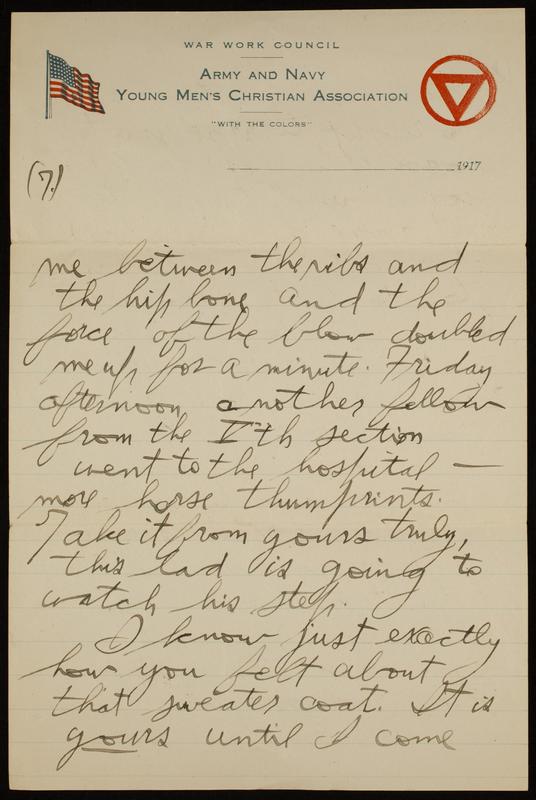 WAR WORK COUNCIL
ARMY AND NAVY
YOUNG MEN'S CHRISTIAN ASSOCIATION
"WITH THE COLORS"
1917
(7.)
me between the ribs and
the hip bone and the
force of the blow doubled
me up for a minute. Friday
afternoon another fellow
from the Vth section
went to the hospital —
more horse thumprints.
Take it from yours truly,
this lad is going to
watch his step.
I know just exactly
how you felt about
that sweater coat. It is
yours until I come